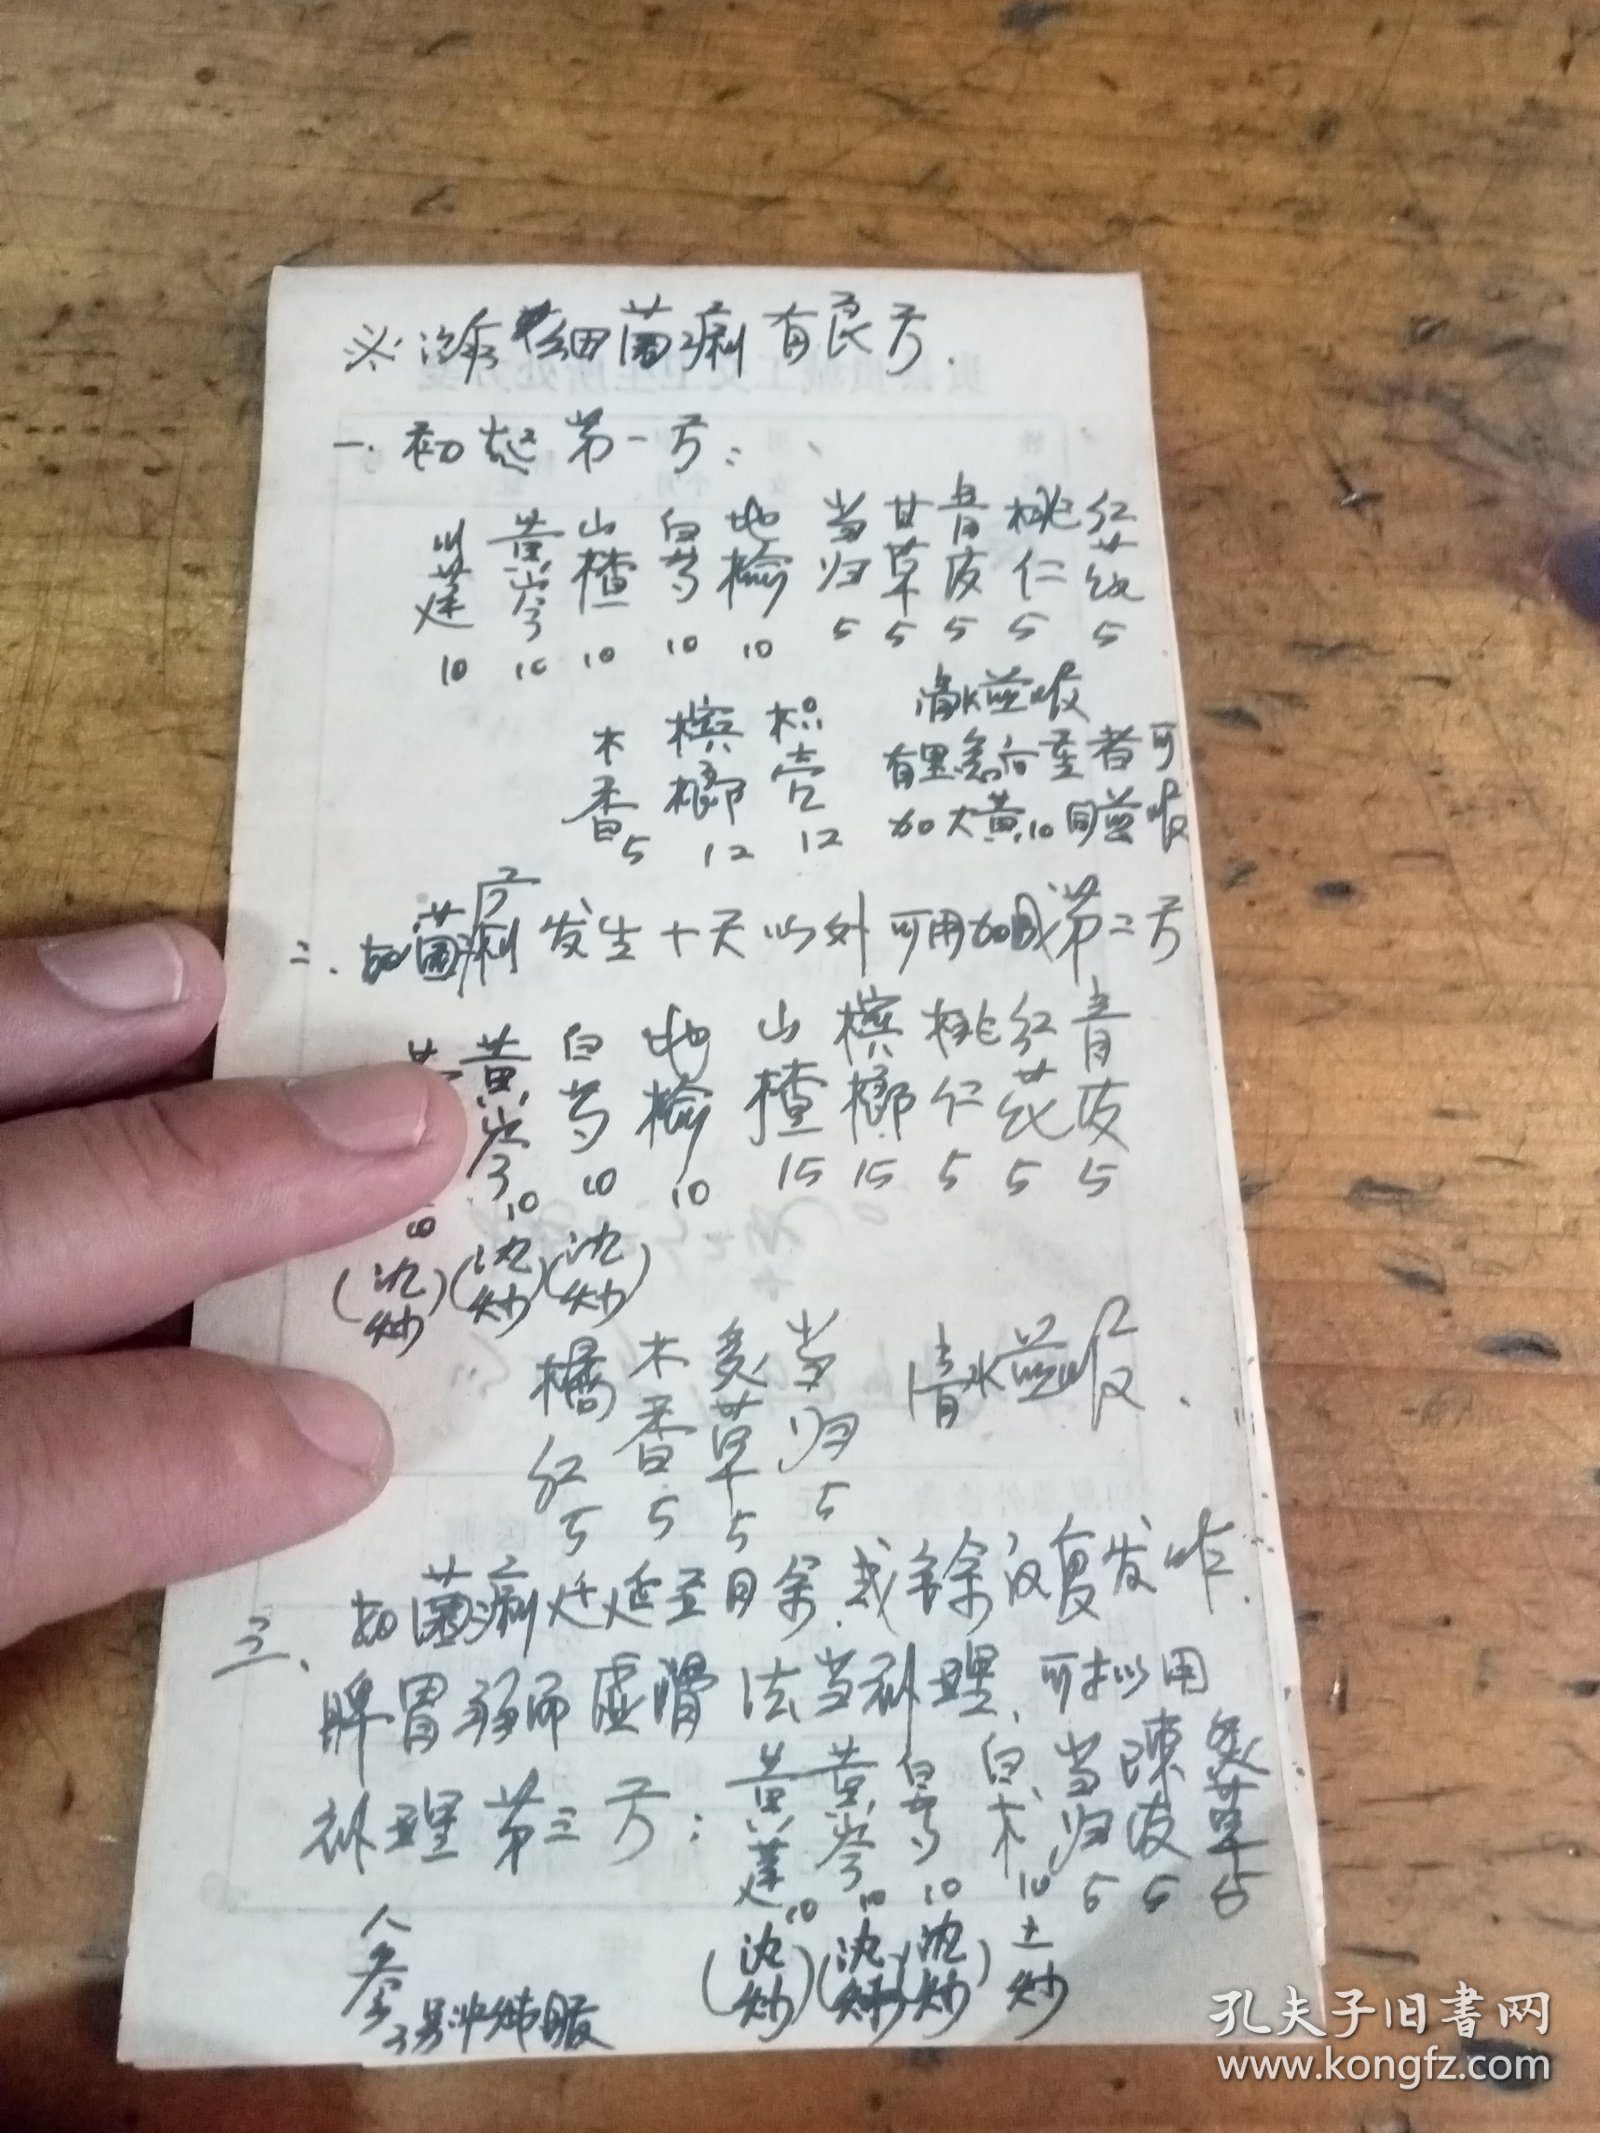 ※治疗细菌痢有良方.
一.初起第一方：
川莲10 黄芩10 山楂10 白芍10 地榆10 当归5 甘草5 青皮5 桃仁5 红花5
木香5 槟榔12 枳壳12
清水煎服
有里急后重者可
加大黄10同煎服
二.如菌痢发生十天以外可用加减第二方
黄芩10(沈炒) 白芍10(沈炒) 地榆10 山楂15 槟榔15 桃仁5 红花5 青皮5
(沈炒)
橘红5 木香5 炙草5 当归5 清水煎服.
三、如菌痢迁延至月余.或愈后复发昨.
脾胃弱而虚滑 法当补理.可拟用
补理第三方：黄莲10(沈炒) 黄芩10(沈炒) 白芍10(沈炒) 白术10土炒 当归5 陈皮5 炙草5
人参3另冲炖服
孔夫子旧书网
www.kongfz.com